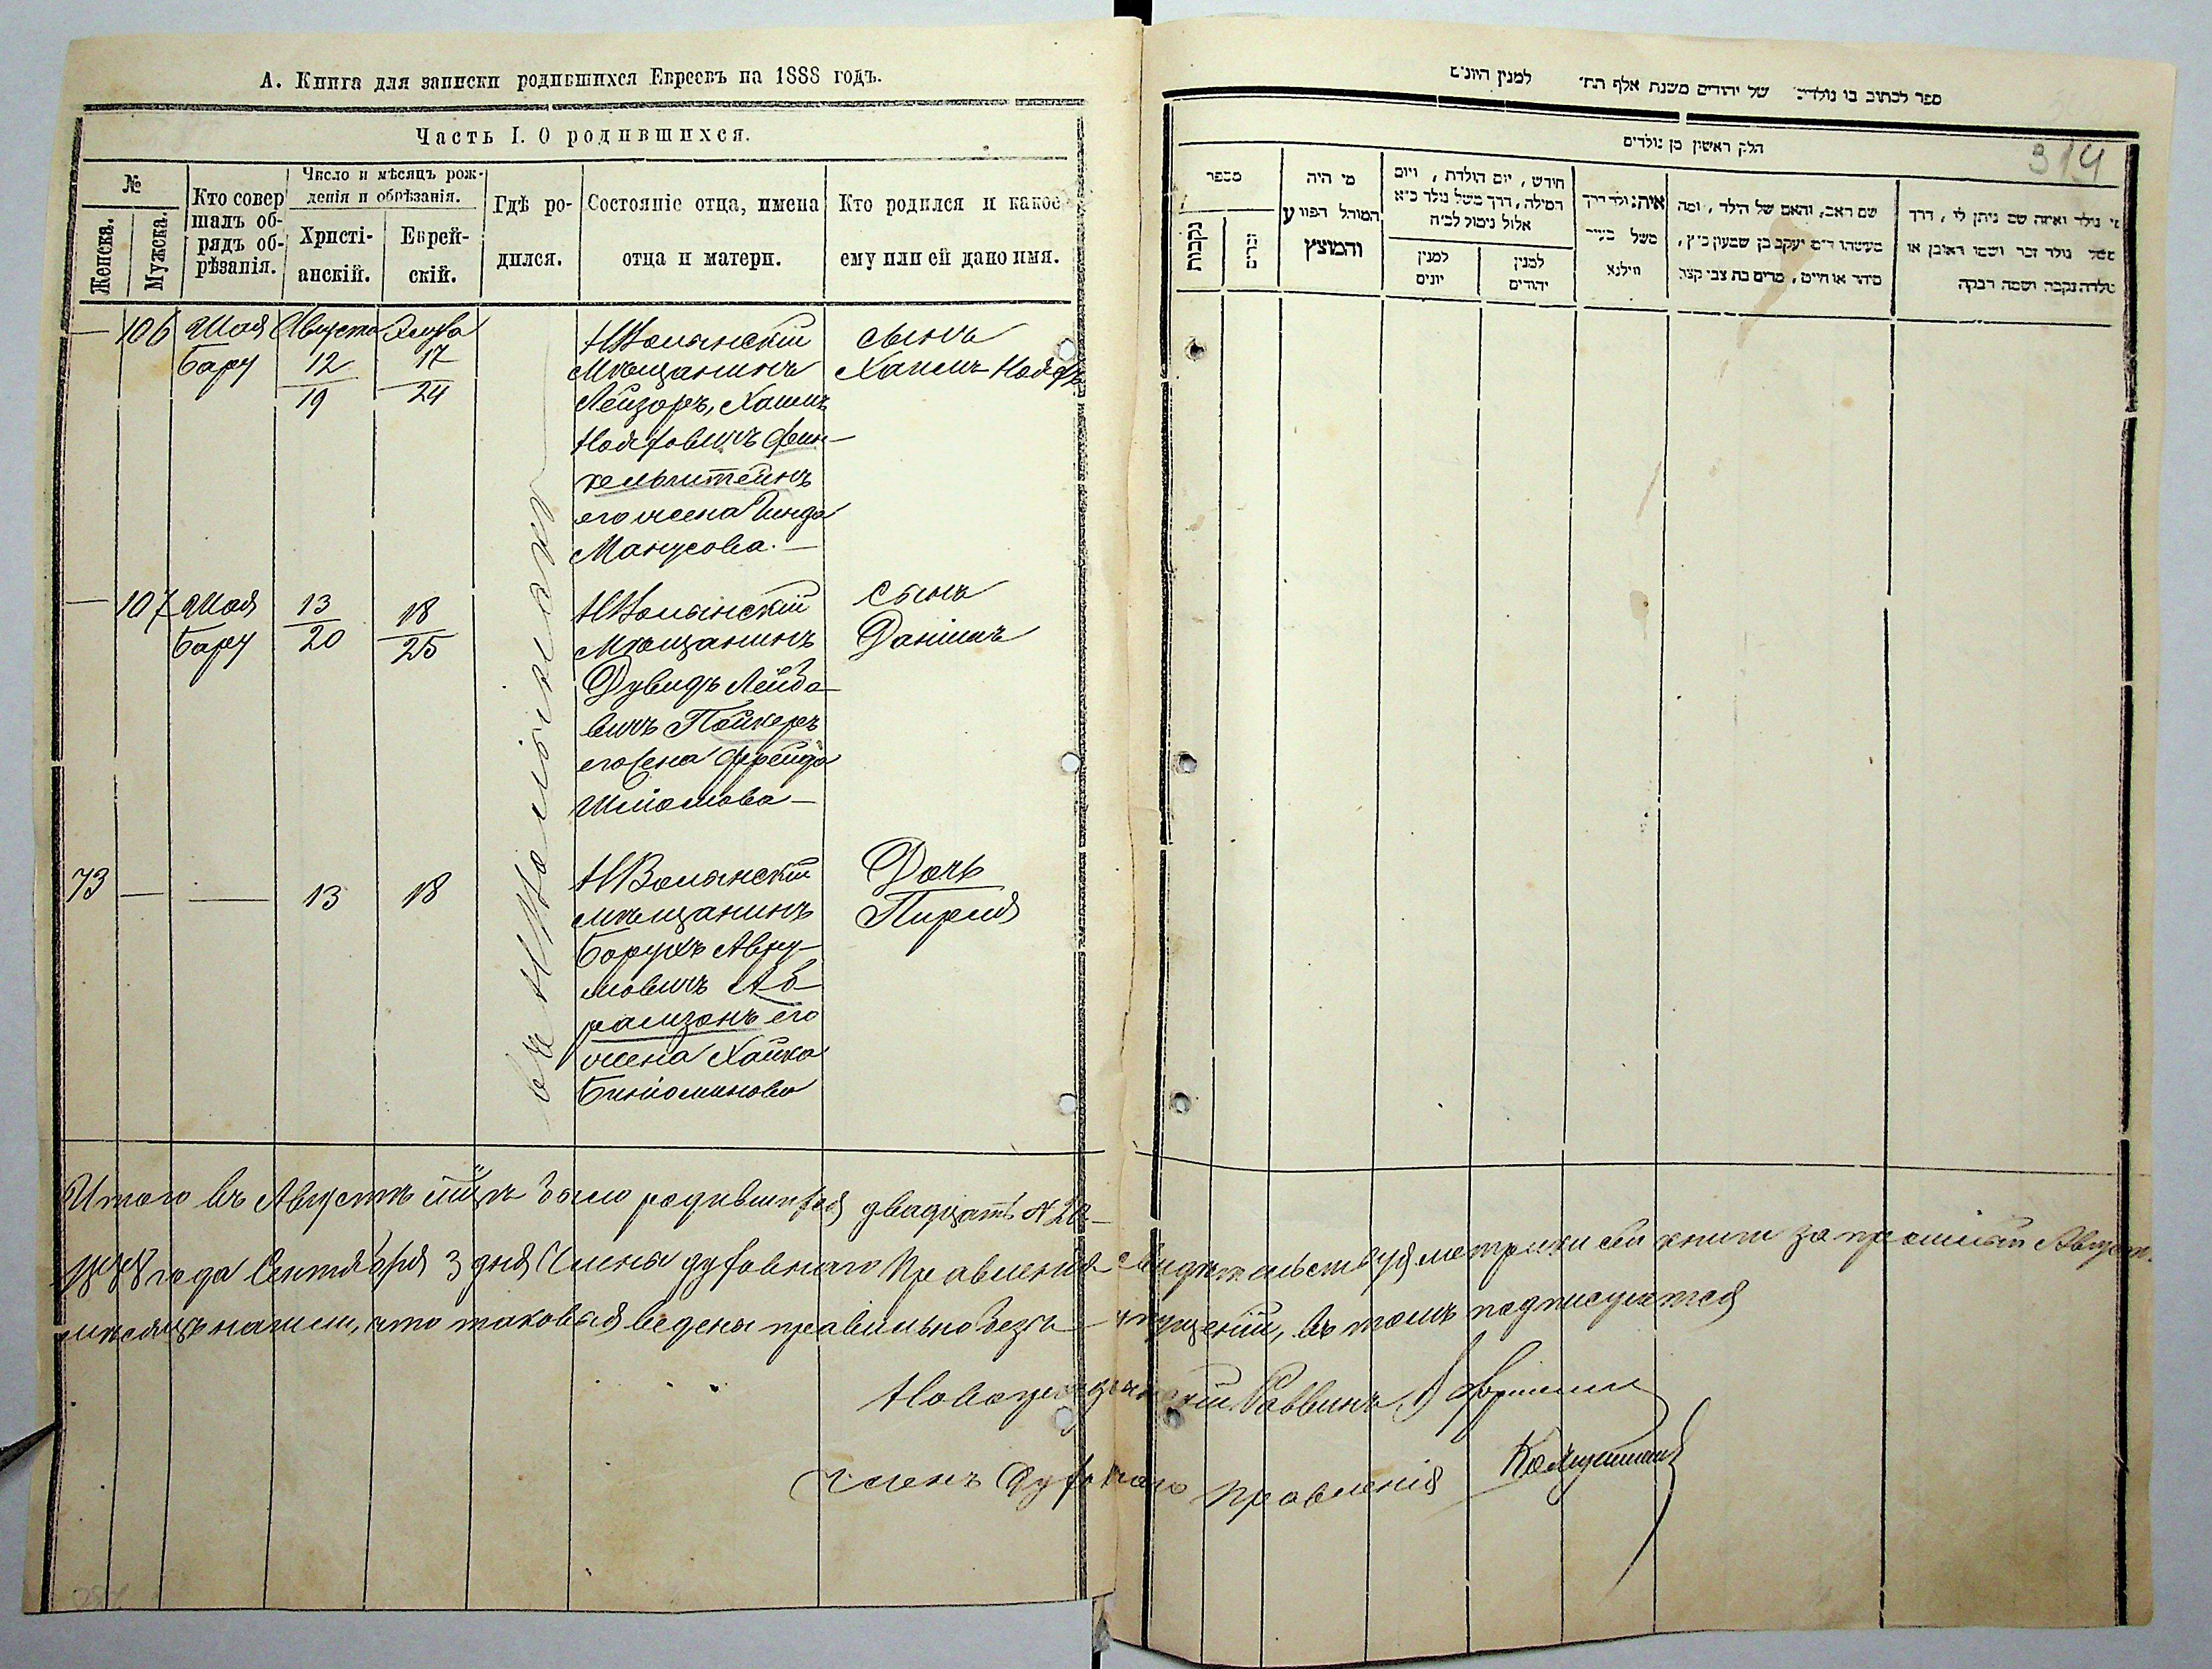 А. Книга для записки родившихся Евреевъ на 1888 годъ.
Часть I. О родившихся.
№
Женска.
Мужска.
Кто совер
шалъ об-
рядъ об-
рѣзанія.
Число и мѣсяцъ рож-
денія и обрѣзанія.
Христі-
анскій.
Еврей-
скій.
Гдѣ ро-
дился.
Состояніе отца, имена
отца и матери.
Кто родился и какое
ему или ей дано имя.
— 106 Шая Августа Элула
Бару 12 17
19 24
Мѣщанинъ
Лейзоръ, Хаимъ
Фин-
кельштейнъ
его жена Гинда
Манусова. —
сынъ
Хаимъ
— 107 Шая 13 18
Бару 20 25
Мѣщанинъ
Дувидъ Лейбо-
вичъ Пойкеръ
его жена Фрейда
Шліомова —
сынъ
Даніилъ
73 — — 13 18
НВолынскій
мѣщанинъ
Борухъ Авру-
мовичъ Аб-
рамзонъ его
жена Хайка
Биніоминова
Дочь
Пирля
Итого въ Августѣ мцѣ было родившихся двадцать № 20 —
1888 года Сентября 3 дня Члены духовнаго Правленія свидѣтельствуя метрики сей книги за прошлый Август
мѣсяцъ нашли, что таковыя ведены правильно безъ упущеній, въ томъ подписуются
Раввинъ
членъ Духовнаго Правленія
ספר לכתוב בו נולדים של יהודים משנת אלף תת׳ למנין היונים
חלק ראשון מן נולדים
314
מספר
נקבות
זכרים
מי היה
המוהל הפורע
והמוצץ
חודש, יום הולדת, ויום
המילה, דרך משל נולד כ״א
אלול נימול לכ״ח
למנין
יונים
למנין
יהודים
איה נולד דרך
משל בעיר
ווילנא
שם האב, והאם של הילד, ומה
מעשהו ד״מ יעקב בן שמעון כ״ץ,
סוחר או חייט, מרים בת צבי קצב
מי נולד ואיזה שם ניתן לו, דרך
משל נולד זכר ושמו ראובן או
נולדה נקבה ושמה רבקה